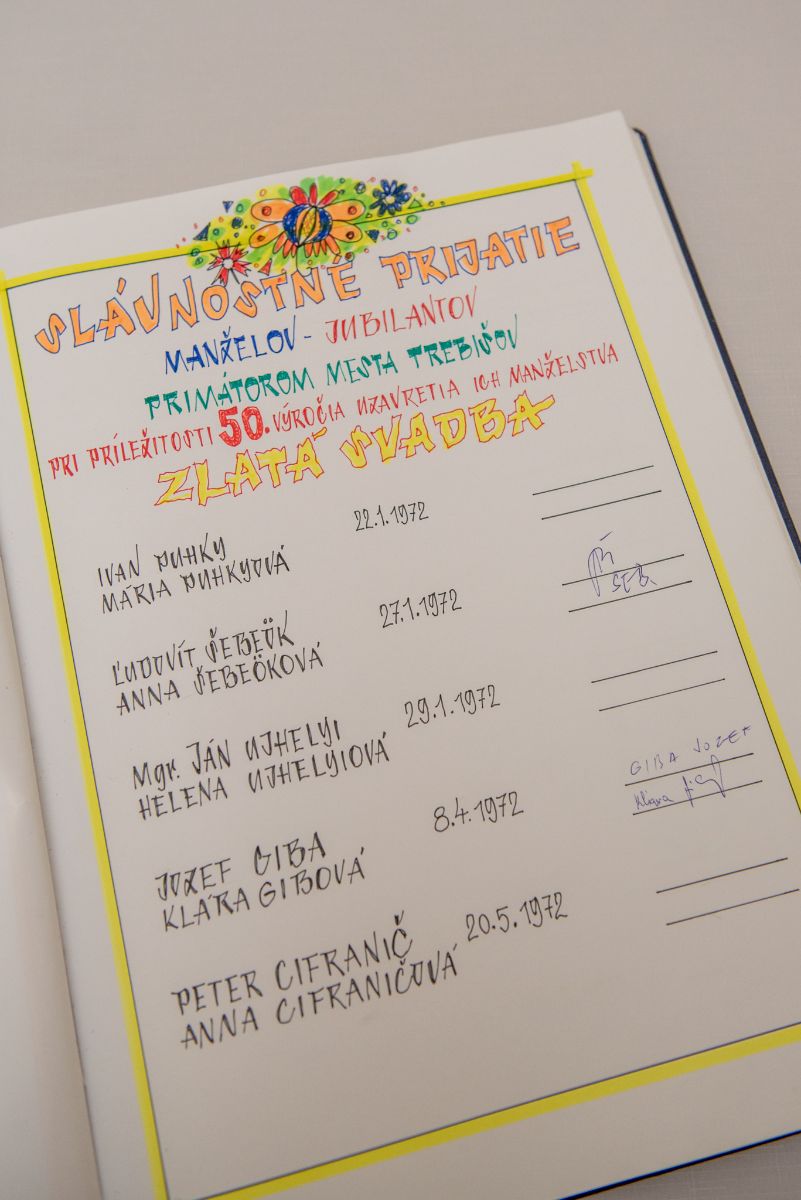 SLÁVNOSTNÉ PRIJATIE
MANŽELOV - JUBILANTOV
PRIMÁTOROM MESTA TREBIŠOV
PRI PRÍLEŽITOSTI 50. VÝROČIA UZAVRETIA ICH MANŽELSTVA
ZLATÁ SVADBA
IVAN PUHKY 22.1.1972
MÁRIA PUHKYOVÁ
ĽUDOVÍT ŠEBEÖK 27.1.1972
ANNA ŠEBEÖKOVÁ
ŠEB.
Mgr. JÁN UJHELYI 29.1.1972
HELENA UJHELYIOVÁ
JOZEF GIBA 8.4.1972 GIBA JOZEF
KLÁRA GIBOVÁ Klára
PETER CIFRANIČ 20.5.1972
ANNA CIFRANIČOVÁ